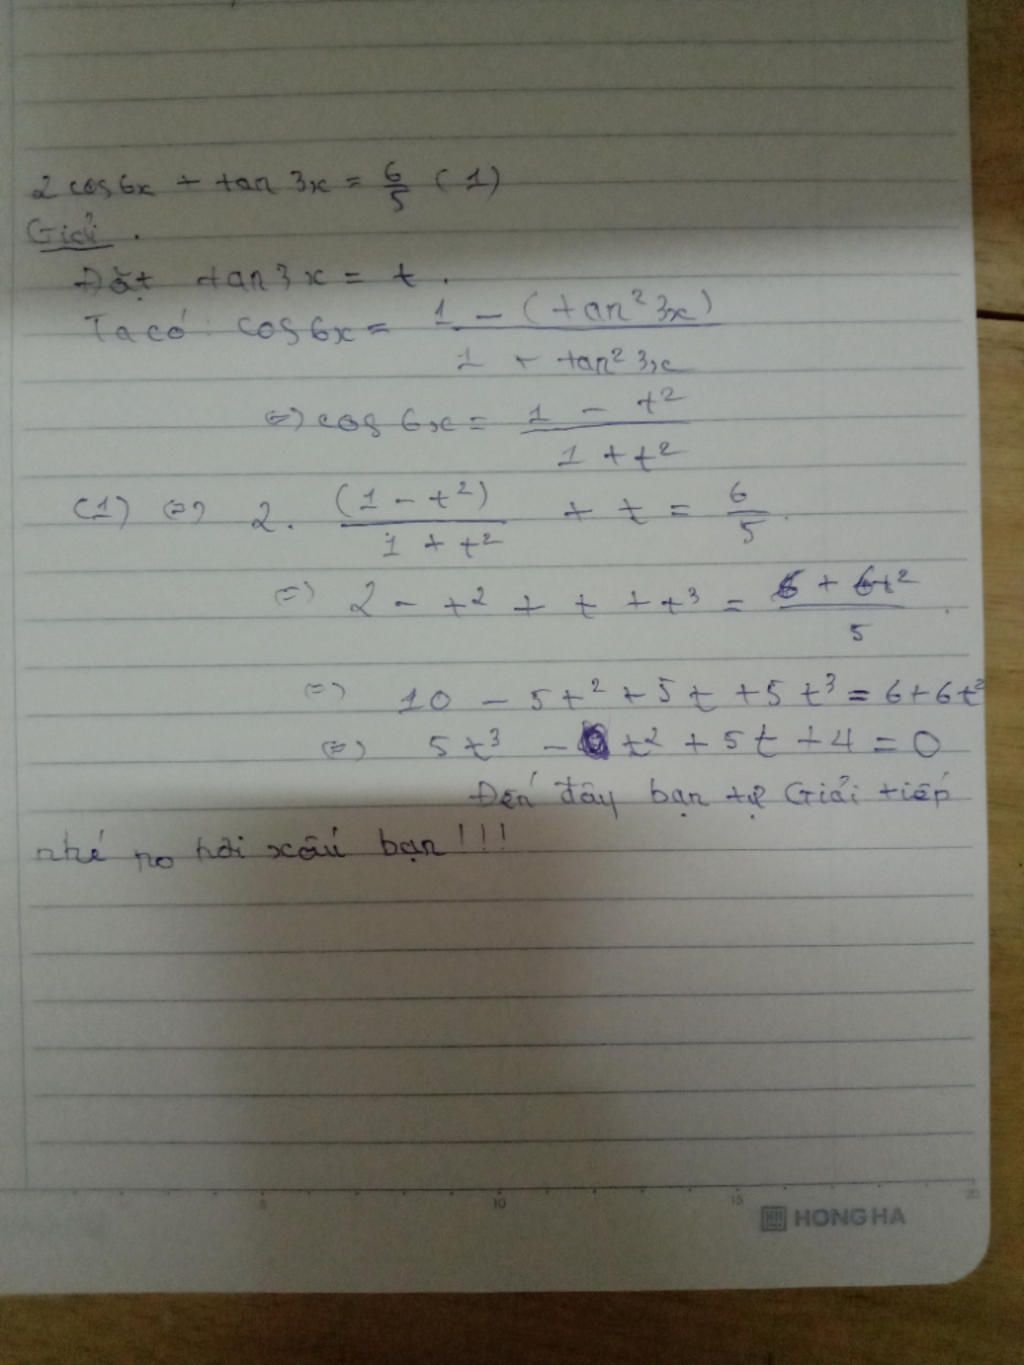 2 cos6x + tan 3x = 6/5 (1)
Giải.
Đặt tan3x = t.
Ta có: cos6x = 1 - (tan² 3x) / 1 + tan² 3x
(=) cos 6x = 1 - t² / 1 + t²
(1) (=) 2. (1 - t²) / 1 + t² + t = 6/5.
(=) 2 - t² + t + t³ = 6 + 6t² / 5.
(=) 10 - 5t² + 5t + 5t³ = 6 + 6t²
(=) 5t³ - t² + 5t + 4 = 0
Đến đây bạn tự Giải tiếp
nhé no hơi xấu bạn!!!
5 10 15 20
HH HONG HA